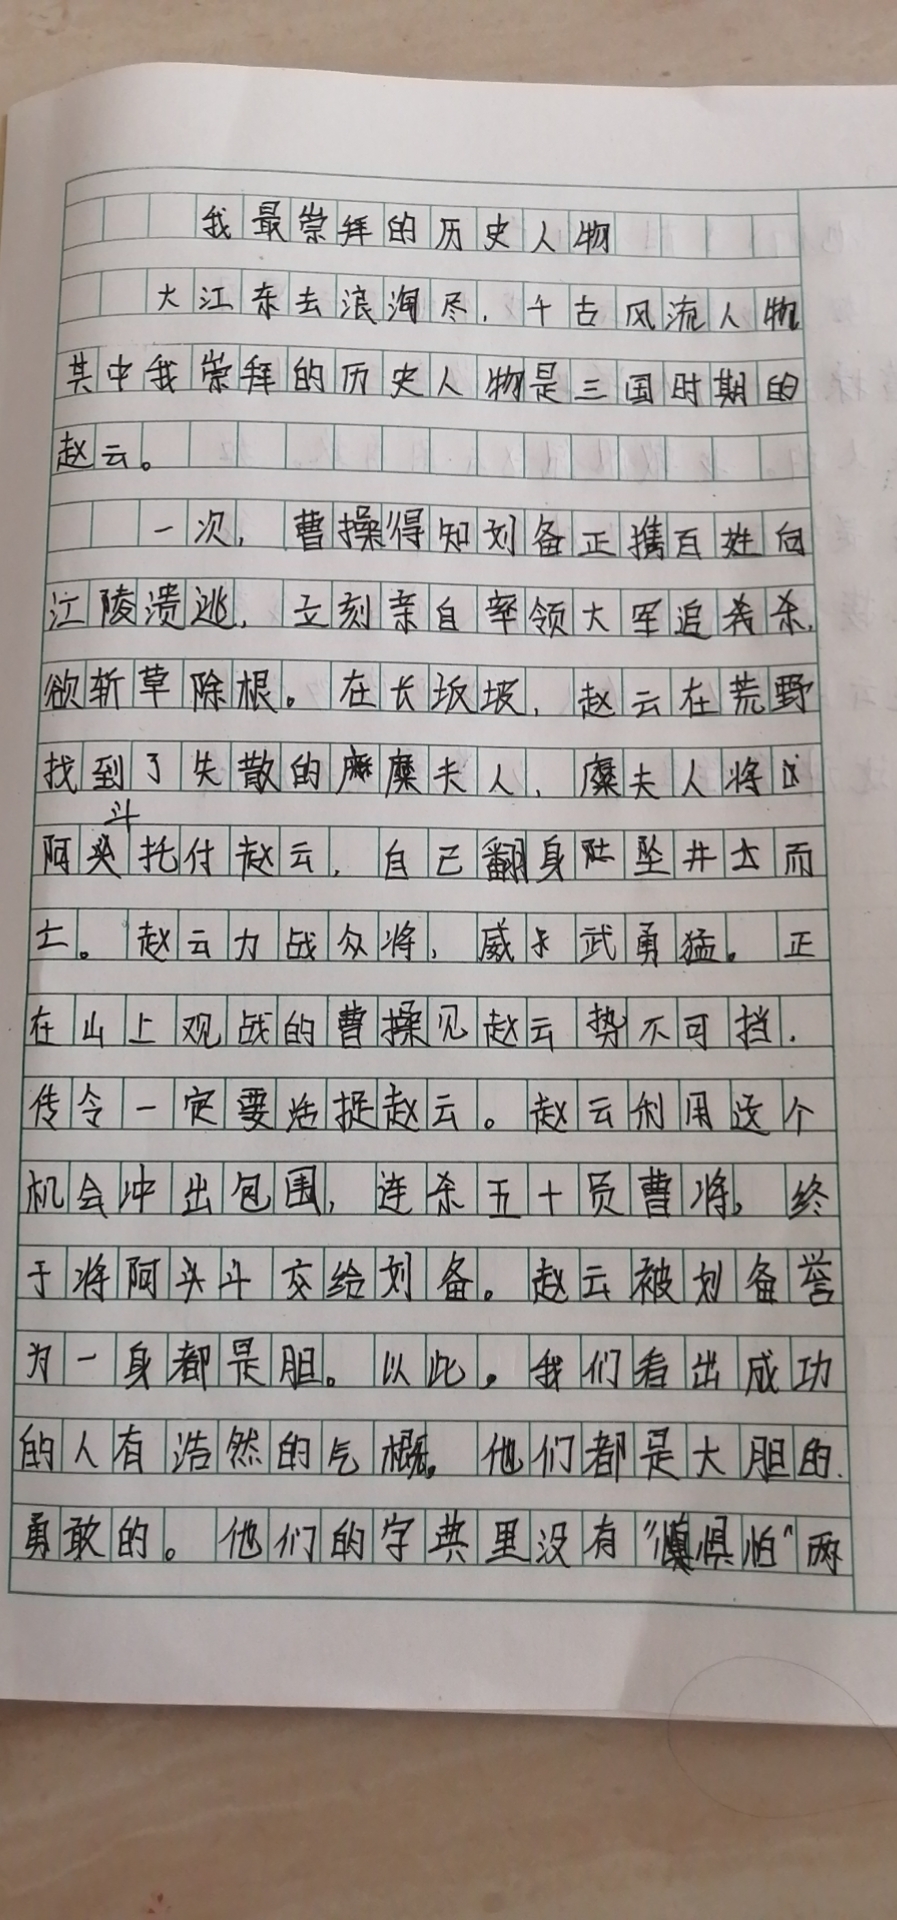 我最崇拜的历史人物
大江东去浪淘尽，千古风流人物
其中我崇拜的历史人物是三国时期的
赵云。
一次，曹操得知刘备正携百姓向
江陵溃逃，立刻亲自率领大军追杀，
欲斩草除根。在长坂坡，赵云在荒野
找到了失散的糜夫人，糜夫人将
阿斗托付赵云，自己翻身坠井而
亡。赵云力战众将，威武勇猛。正
在山上观战的曹操见赵云势不可挡，
传令一定要活捉赵云。赵云利用这个
机会冲出包围，连杀五十员曹将，终
于将阿斗交给刘备。赵云被刘备誉
为一身都是胆。以此，我们看出成功
的人有浩然的气概，他们都是大胆的、
勇敢的。他们的字典里没有“惧怕”两